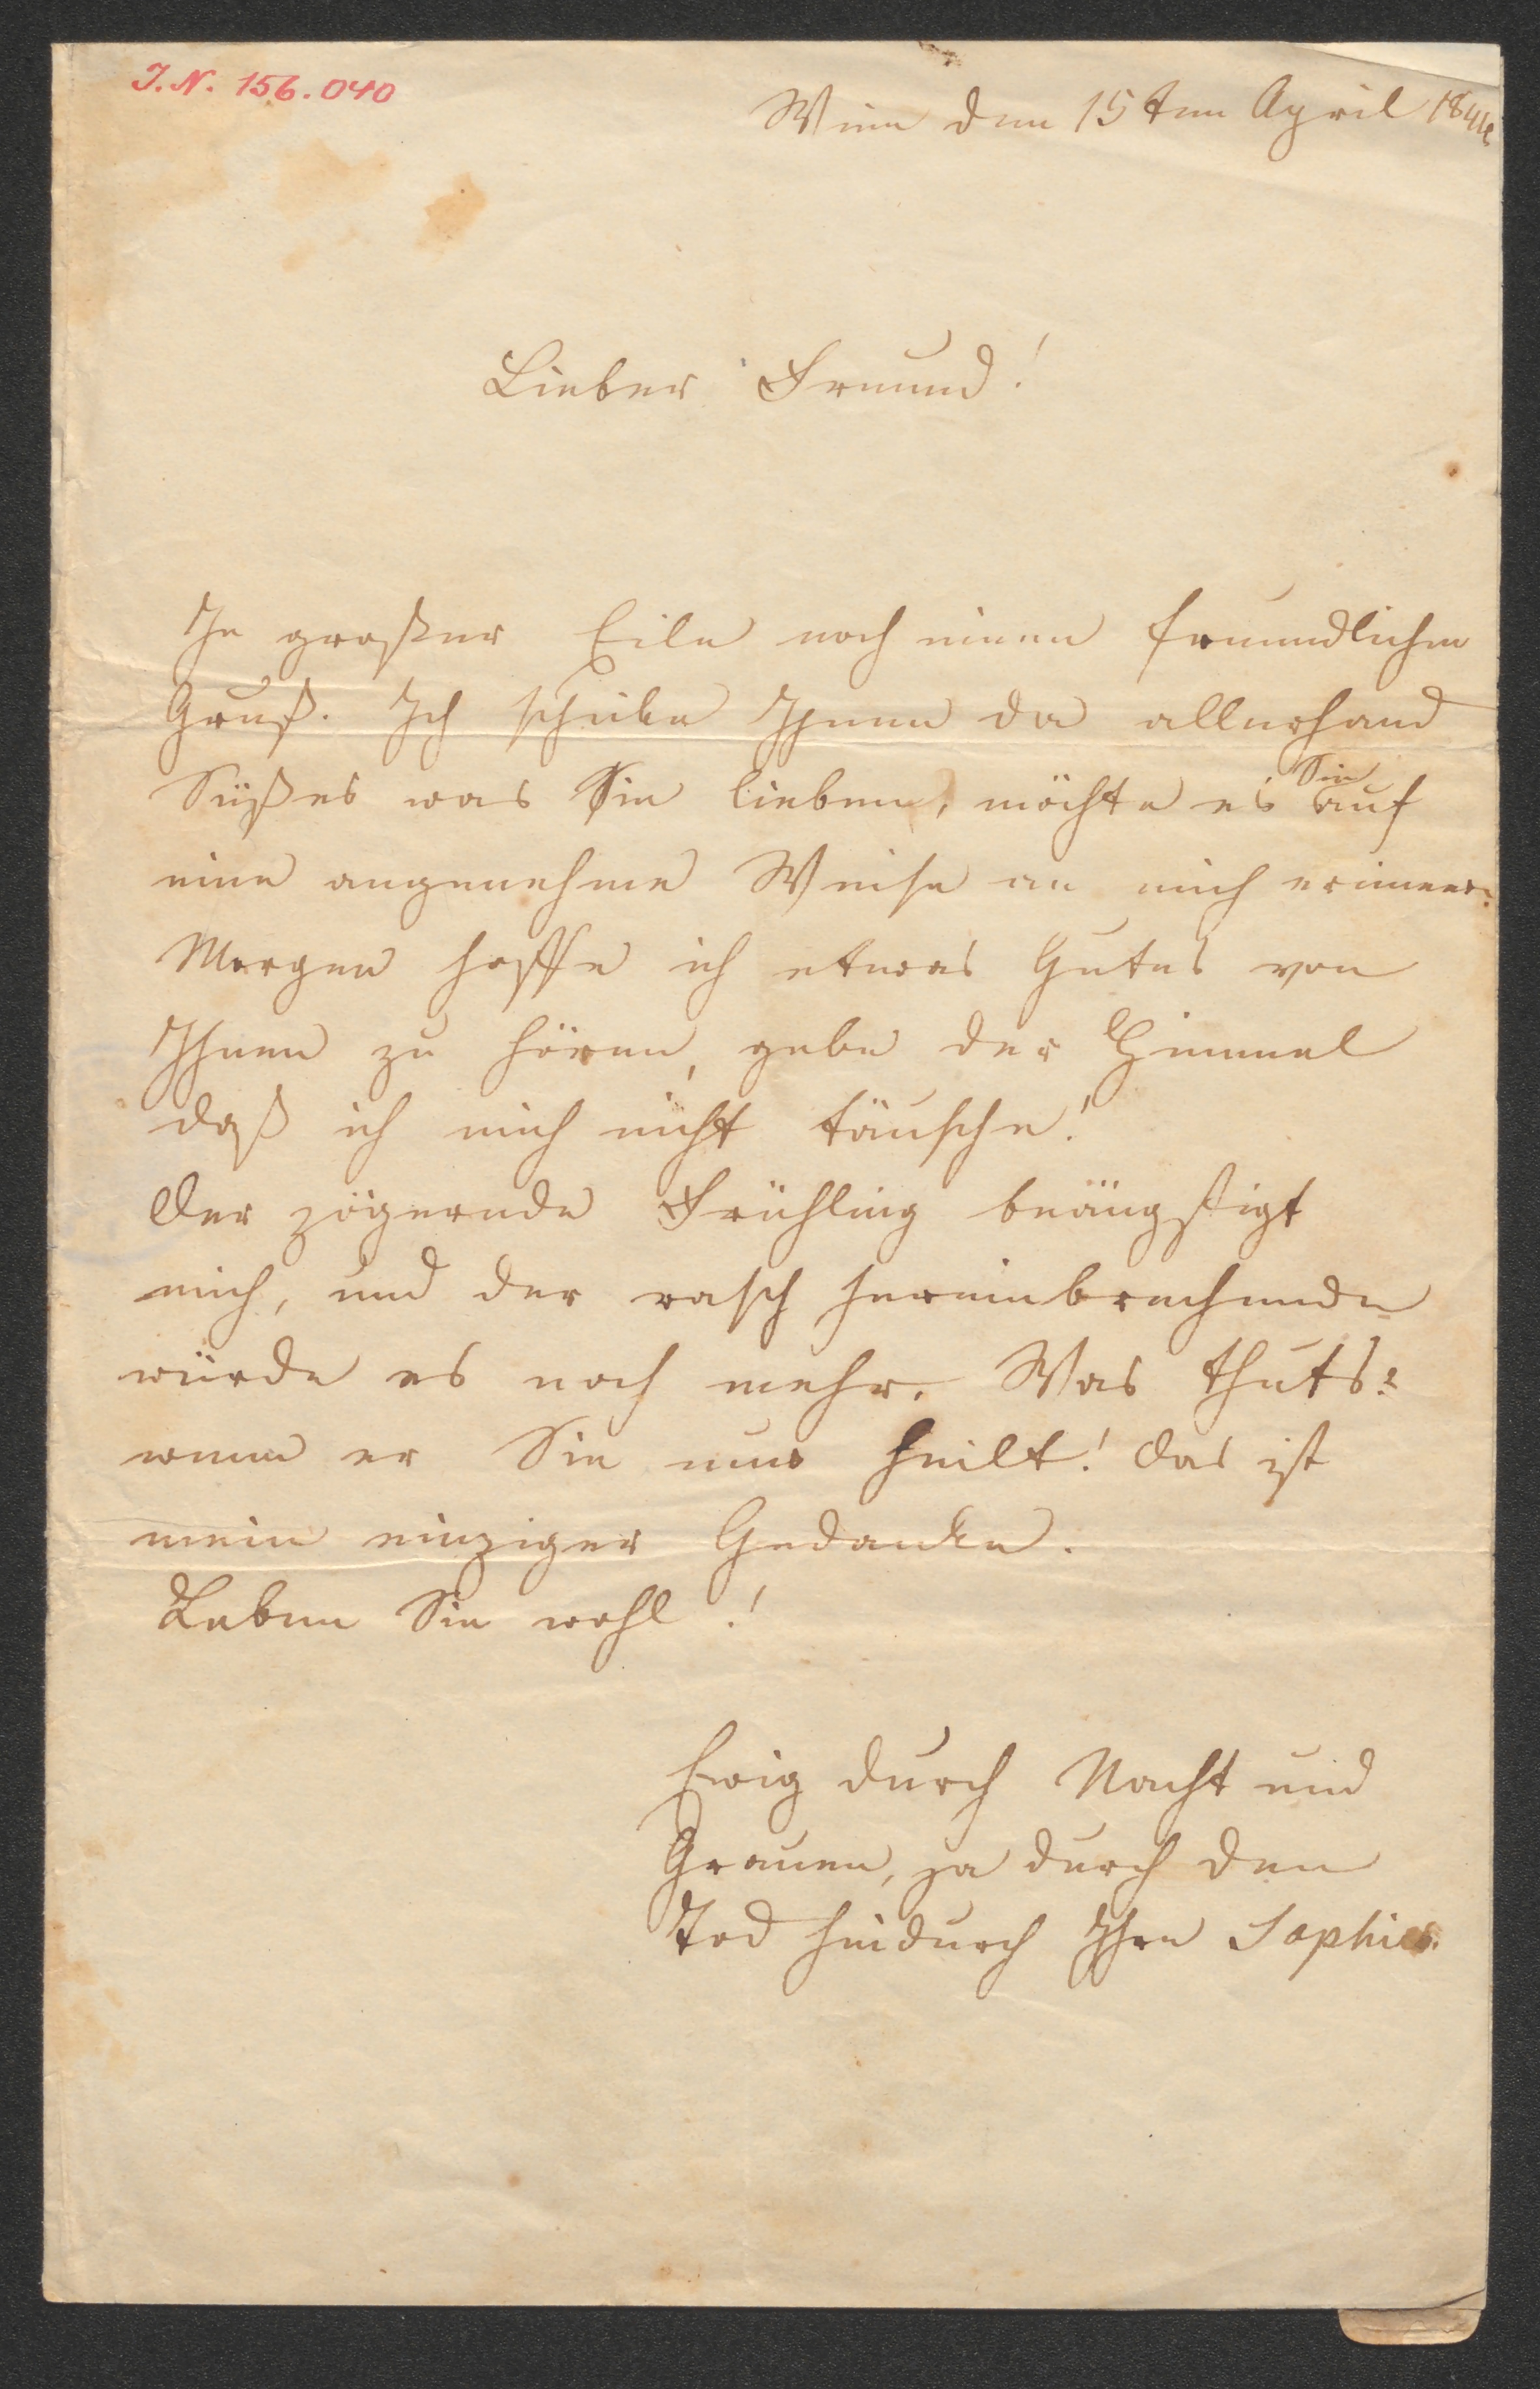 I.N. 156.040
Wien den 15ten April 1846
Lieber Freund!
In großer Eile noch einen freundlichen
Gruß. Ich schicke Ihnen da allerhand
Süßes was Sie lieben, möchte es Sie auf
eine angenehme Weise an mich erinnern.
Morgen hoffe ich etwas Gutes von
Ihnen zu hören, gebe der Himmel
daß ich mich nicht täusche!
Der zögernde Frühling beängstigt
mich, und der rasch hereinbrechende
würde es noch mehr. Was thuts?
wenn er Sie nur heilt! Das ist
mein einziger Gedanke.
Leben Sie wohl!
Ewig durch Nacht und
Grauen, ja durch den
Tod hindurch Ihre Sophie.